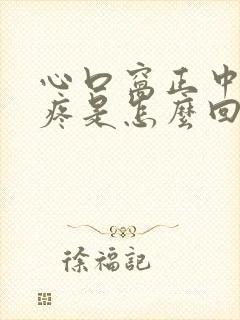 心口窩正中
疼是怎麼回
徐福記